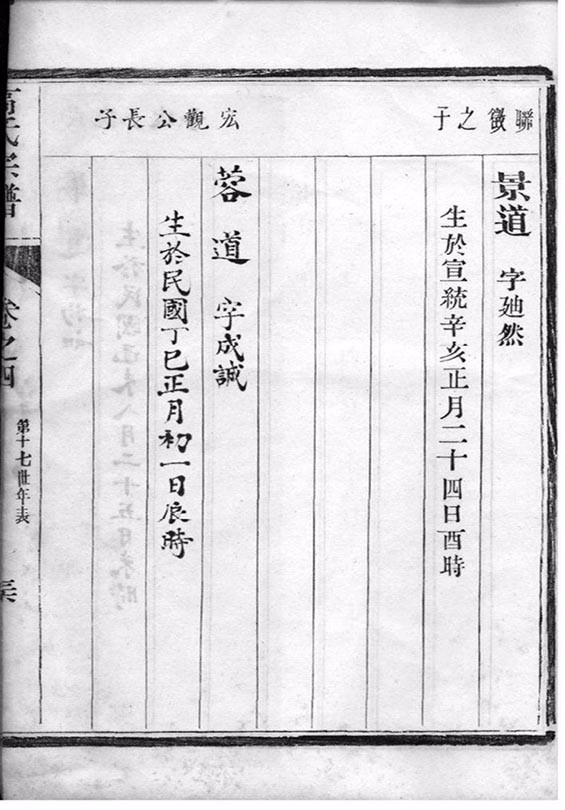 聯徽之子
景道 字廸然
生於宣統辛亥正月二十四日酉時
宏觀公長子
蓉道 字成誠
生於民國丁巳正月初一日辰時
氏宗譜
卷之四
第十七世年表